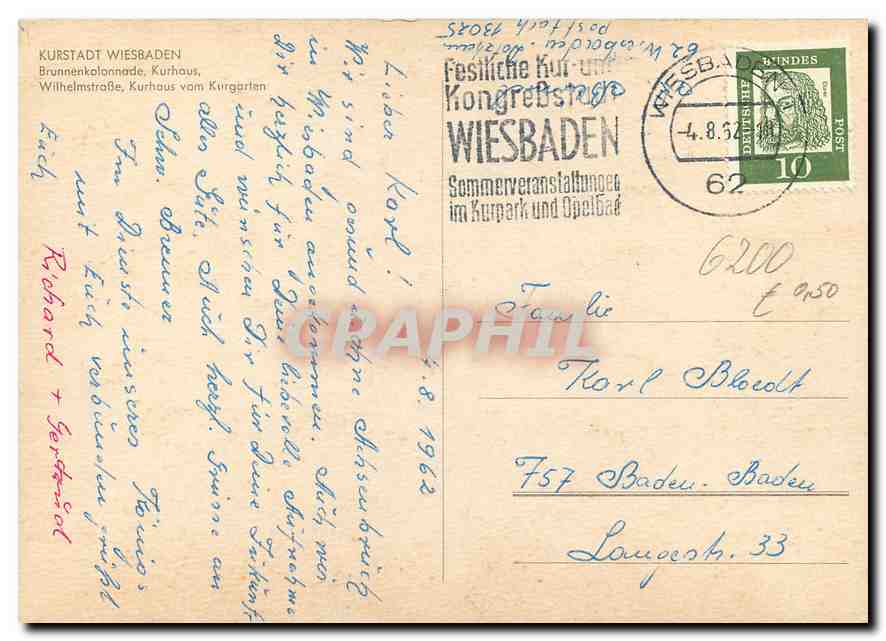 KURSTADT WIESBADEN
Brunnenkolonnade, Kurhaus,
Wilhelmstraße, Kurhaus vom Kurgarten
4.8.1962
Lieber Karl!
Wir sind gesund und ohne Achsenbruch
in Wiesbaden angekommen. Auch wir
Dir herzlich für Deine liebevolle Aufnahme
und wünschen Dir für Deine Zukunft
alles Gute. Auch herzl. Grüsse an
Schw. Brenner
Im Dienste unseres Königs
mit Euch verbunden grüßt
Euch
Richard + Gertrud
62 Wiesbaden
Postfach 13025
Festliche Kur- und
Kongreßstadt
WIESBADEN
Sommerveranstaltungen
im Kurpark und Opelbad
WIESBADEN
-4.8.62
62
DEUTSCHE BUNDESPOST
Dürer
10
6200
€ 0,50
CPAPHIL
Familie
Karl Bloedt
757 Baden-Baden
Langestr. 33